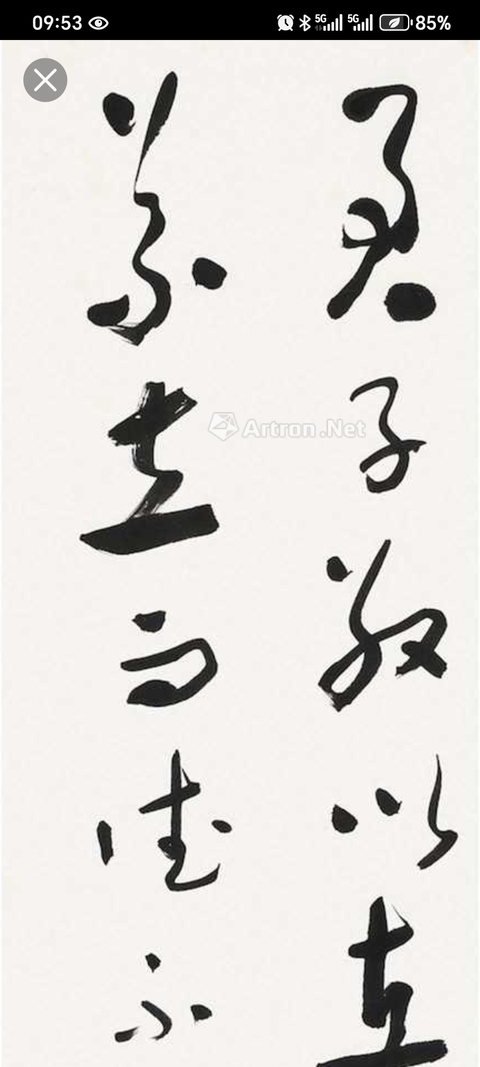 09:53
5G 5G 85%
君子敬以直
義立而德不
Artron.Net